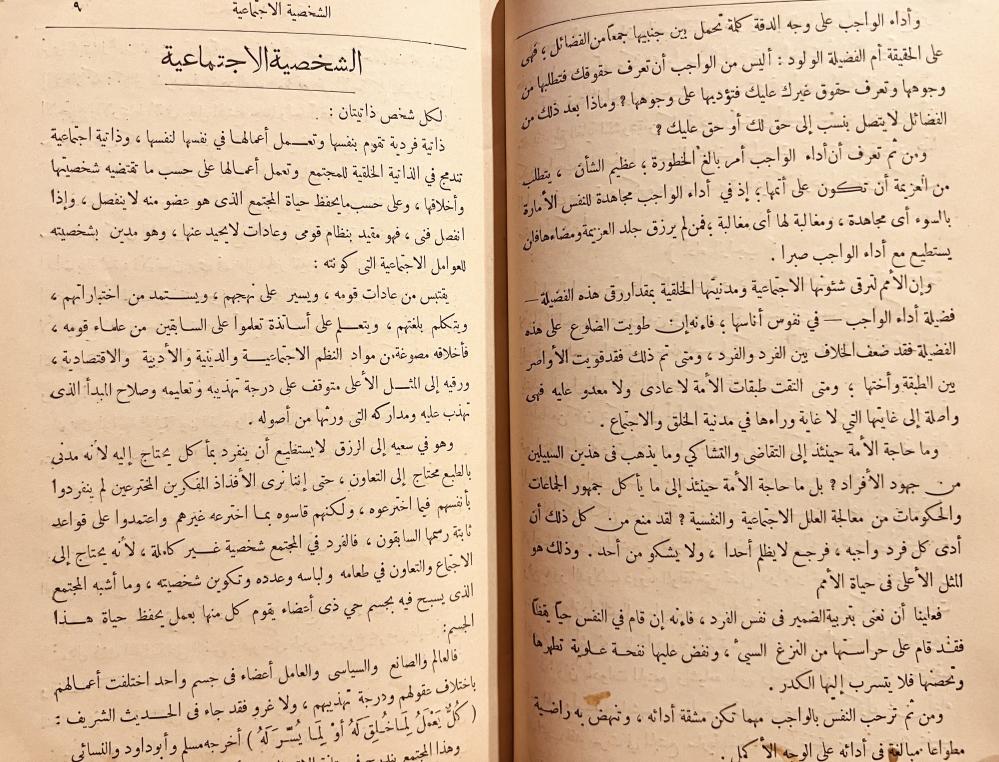 وأداء الواجب على وجه الدقة كلمة تحمل بين جنبيها جمعاً من الفضائل ؛ فهى
على الحقيقة أم الفضيلة الولود : أليس من الواجب أن تعرف حقوقك فتطلبها من
وجوهها وتعرف حقوق غيرك عليك فتؤديها على وجوهها ؟ وماذا بعد ذلك من
الفضائل لا يتصل بنسب إلى حق لك أو حق عليك ؟
ومن ثم تعرف أن أداء الواجب أمر بالغ الخطورة ؛ عظيم الشأن ، يتطلب
من العزيمة أن تكون على أتمها ؛ إذ فى أداء الواجب مجاهدة للنفس الأمارة
بالسوء أى مجاهدة ، ومغالبة لها أى مغالبة ؛ فمن لم يرزق جلد العزيمة ومضاءها فلن
يستطيع مع أداء الواجب صبرا .
وإن الأمم لترقى شئونها الاجتماعية ومدنيتها الخلقية بمقدار رقى هذه الفضيلة —
فضيلة أداء الواجب — فى نفوس أناسها ؛ فإنه إن طويت الضلوع على هذه
الفضيلة فقد ضعف الخلاف بين الفرد والفرد ، ومتى تم ذلك فقد قويت الأواصر
بين الطبقة وأختها ؛ ومتى التقت طبقات الأمة لا عادى ولا معدو عليه فهى
واصلة إلى غايتها التي لا غاية وراءها فى مدنية الخلق والاجتماع .
وما حاجة الأمة حينئذ إلى التقاضى والتشاكي وما يذهب فى هذين السبيلين
من جهود الأفراد ؟ بل ما حاجة الأمة حينئذ إلى ما يأكل جمهور الجماعات
والحكومات من معالجة العلل الاجتماعية والنفسية ؟ لقد منع من كل ذلك أن
أدى كل فرد واجبه ، فرجع لا يظلم أحدا ، ولا يشكو من أحد . وذلك هو
المثل الأعلى فى حياة الأمم
فعلينا أن نعنى بتربية الضمير فى نفس الفرد ، فإنه إن قام فى النفس حياً يقظاً
فقد قام على حراستها من النزغ السيئ ، ونفض عليها نفحة علوية تطهرها
وتحصنها فلا يتسرب إليها الكدر .
ومن ثم ترحب النفس بالواجب مهما تكن مشقة أدائه ، وتنهض به راضية
مطواعا مبالغة فى أدائه على الوجه الأكمل .
الشخصية الاجتماعية
٩
الشخصية الاجتماعية
لكل شخص ذاتيتان :
ذاتية فردية تقوم بنفسها وتعمل أعمالها فى نفسها لنفسها ، وذاتية اجتماعية
تندمج فى الذاتية الخلقية للمجتمع وتعمل أعمالها على حسب ما تقتضيه شخصيتها
وأخلاقها ، وعلى حسب ما يحفظ حياة المجتمع الذى هو عضو منه لا ينفصل ، وإذا
انفصل فنى ، فهو مقيد بنظام قومى وعادات لا يحيد عنها ، وهو مدين بشخصيته
للعوامل الاجتماعية التى كونته :
يقتبس من عادات قومه ، ويسير على نهجهم ، ويستمد من اختباراتهم ،
ويتكلم بلغتهم ، ويتعلم على أساتذة تعلموا على السابقين من علماء قومه ،
فأخلاقه مصوغة من مواد النظم الاجتماعية والدينية والأدبية والاقتصادية ،
ورقيه إلى المثل الأعلى متوقف على درجة تهذيبه وتعليمه وصلاح المبدأ الذى
تهذب عليه ومداركه التى ورثها من أصوله .
وهو في سعيه إلى الرزق لا يستطيع أن ينفرد بما كل يحتاج إليه لأنه مدنى
بالطبع محتاج إلى التعاون ، حتى إننا نرى الأفذاذ المفكرين المخترعين لم ينفردوا
بأنفسهم فيما اخترعوه ، ولكنهم قاسوه بما اخترعه غيرهم واعتمدوا على قواعد
ثابتة رسمها السابقون ، فالفرد فى المجتمع شخصية غير كاملة ، لأنه يحتاج إلى
الاجتماع والتعاون في طعامه ولباسه وعدده وتكوين شخصيته ، وما أشبه المجتمع
الذى يسبح فيه بجسم حي ذى أعضاء يقوم كل منها بعمل يحفظ حياة هذا
الجسم :
فالعالم والصانع والسياسى والعامل أعضاء فى جسم واحد اختلفت أعمالهم
باختلاف عقولهم ودرجة تهذيبهم ، ولا غرو فقد جاء فى الحديث الشريف :
( كُلٌّ يَعْمَلُ لِمَا خُلِقَ لَهُ أَوْ لِمَا يُسِّرَ لَهُ ) أخرجه مسلم وأبو داود والنسائي
وهذا المجتمع